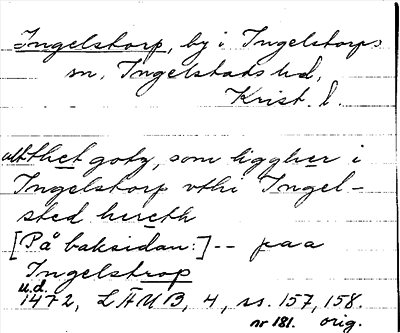 Ingelstorp, by i Ingelstorps
sn, Ingelstads hd,
Krist. l.
etthet gotz, som liggher i
Ingelstorp vthi Ingel-
sted hereth
[På baksidan:] -- paa
Ingelstrop
u.d.
1472, LÄUB, 4, ss. 157, 158.
nr 181. orig.